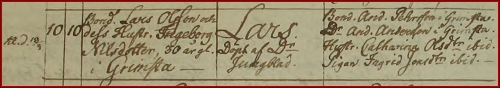 10 10 Bond. Lars Olsson och
dess Hustr. Ingeborg
Nilsdotter, 30 årgl.
i Grimsta
Lars.
Döpt af Dr
Ljungblad.
Bond. And. Pehrsson i Grimsta.
Dr. And. Andersson i Grimsta.
Hustr. Catharina Olsdtr ibid.
Pigan Ingrid Jonsdtr ibid.